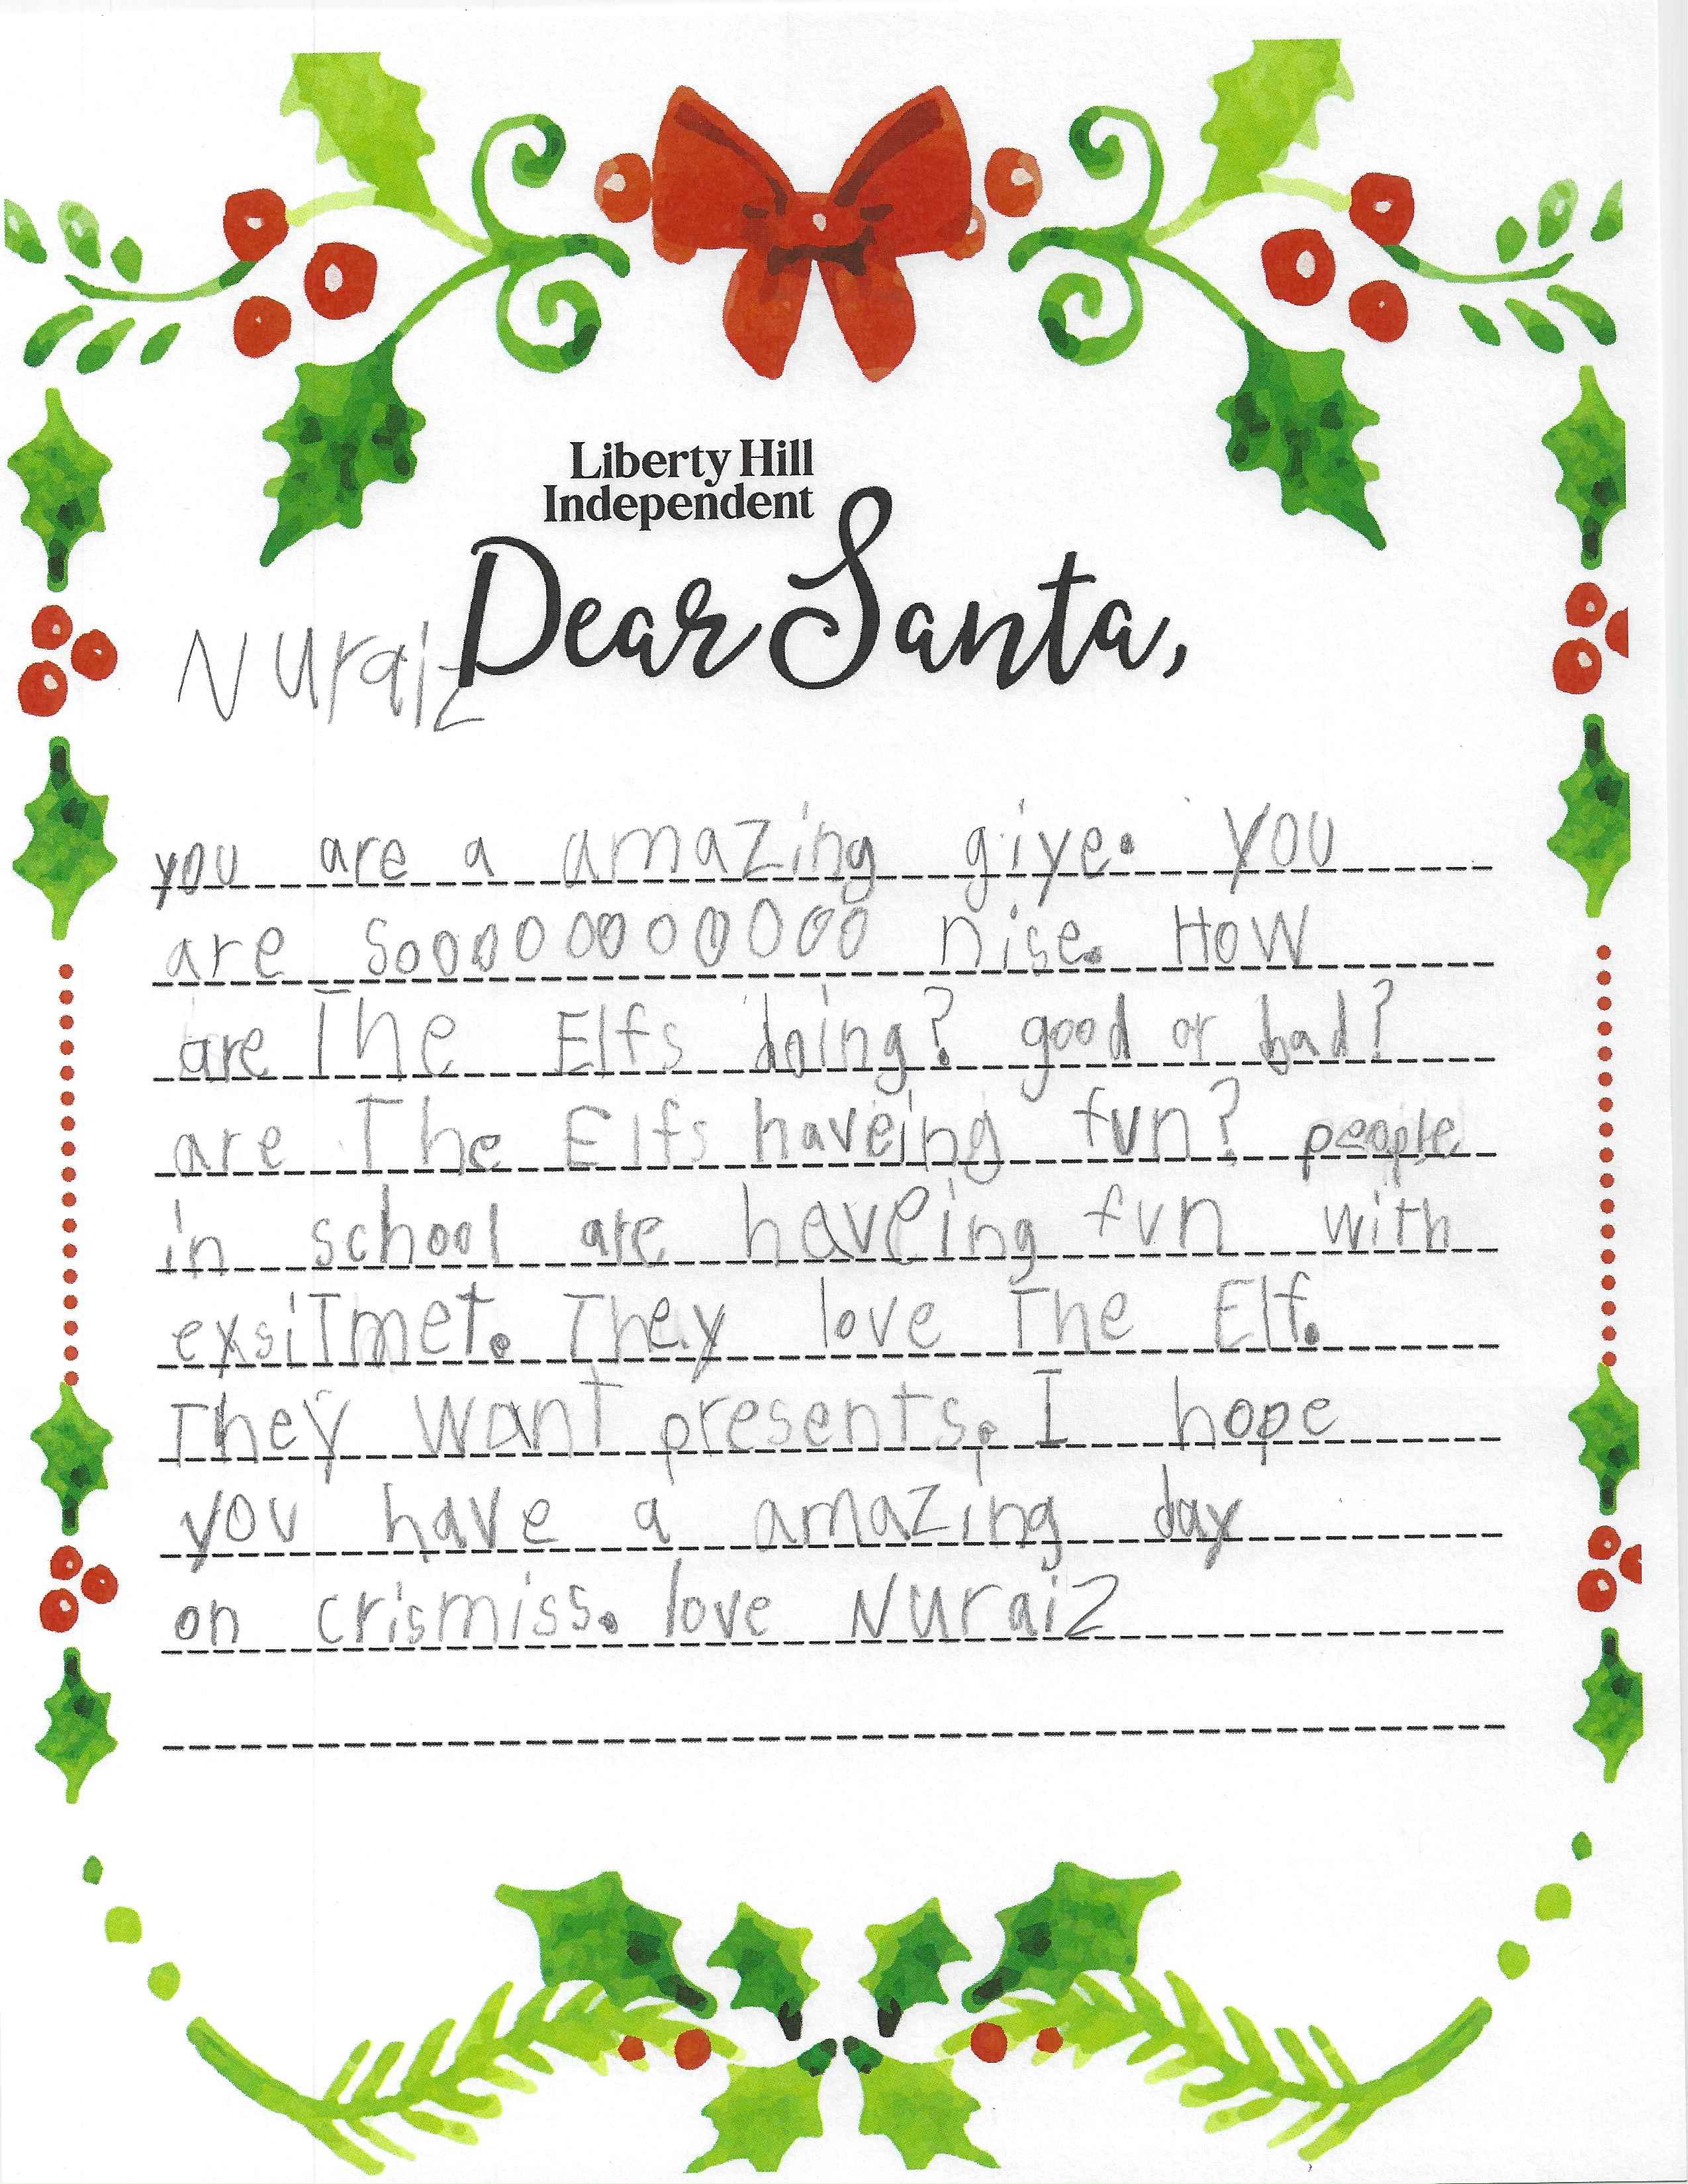 Liberty Hill
Independent
Dear Santa,
Nuraiz
you are a amazing giye. you
are sooooooooooo nise. How
are The Elfs doing? good or bad?
are The Elfs haveing fun? people
in school are haveing fun with
exsiTmet. They love The Elf.
They want presents. I hope
you have a amazing day
on crismiss. love Nuraiz